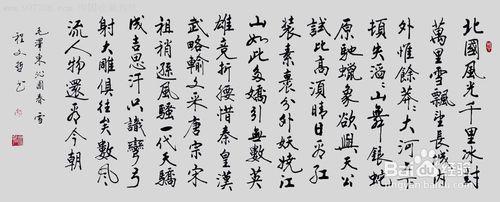 北國風光千里冰封
萬里雪飄望長城内
外惟餘莽々大河上下
頓失滔々山舞銀蛇
原馳蠟象欲與天公
試比高須晴日看紅
裝素裹分外妖嬈江
山如此多嬌引無數英
雄竞折腰惜秦皇漢
武略輸文采唐宗宋
祖稍遜風騷一代天驕
成吉思汗只識彎弓
射大雕俱往矣數風
流人物還看今朝
毛澤東沁園春雪
程文哲书
Baidu经验
jingyan.baidu.com